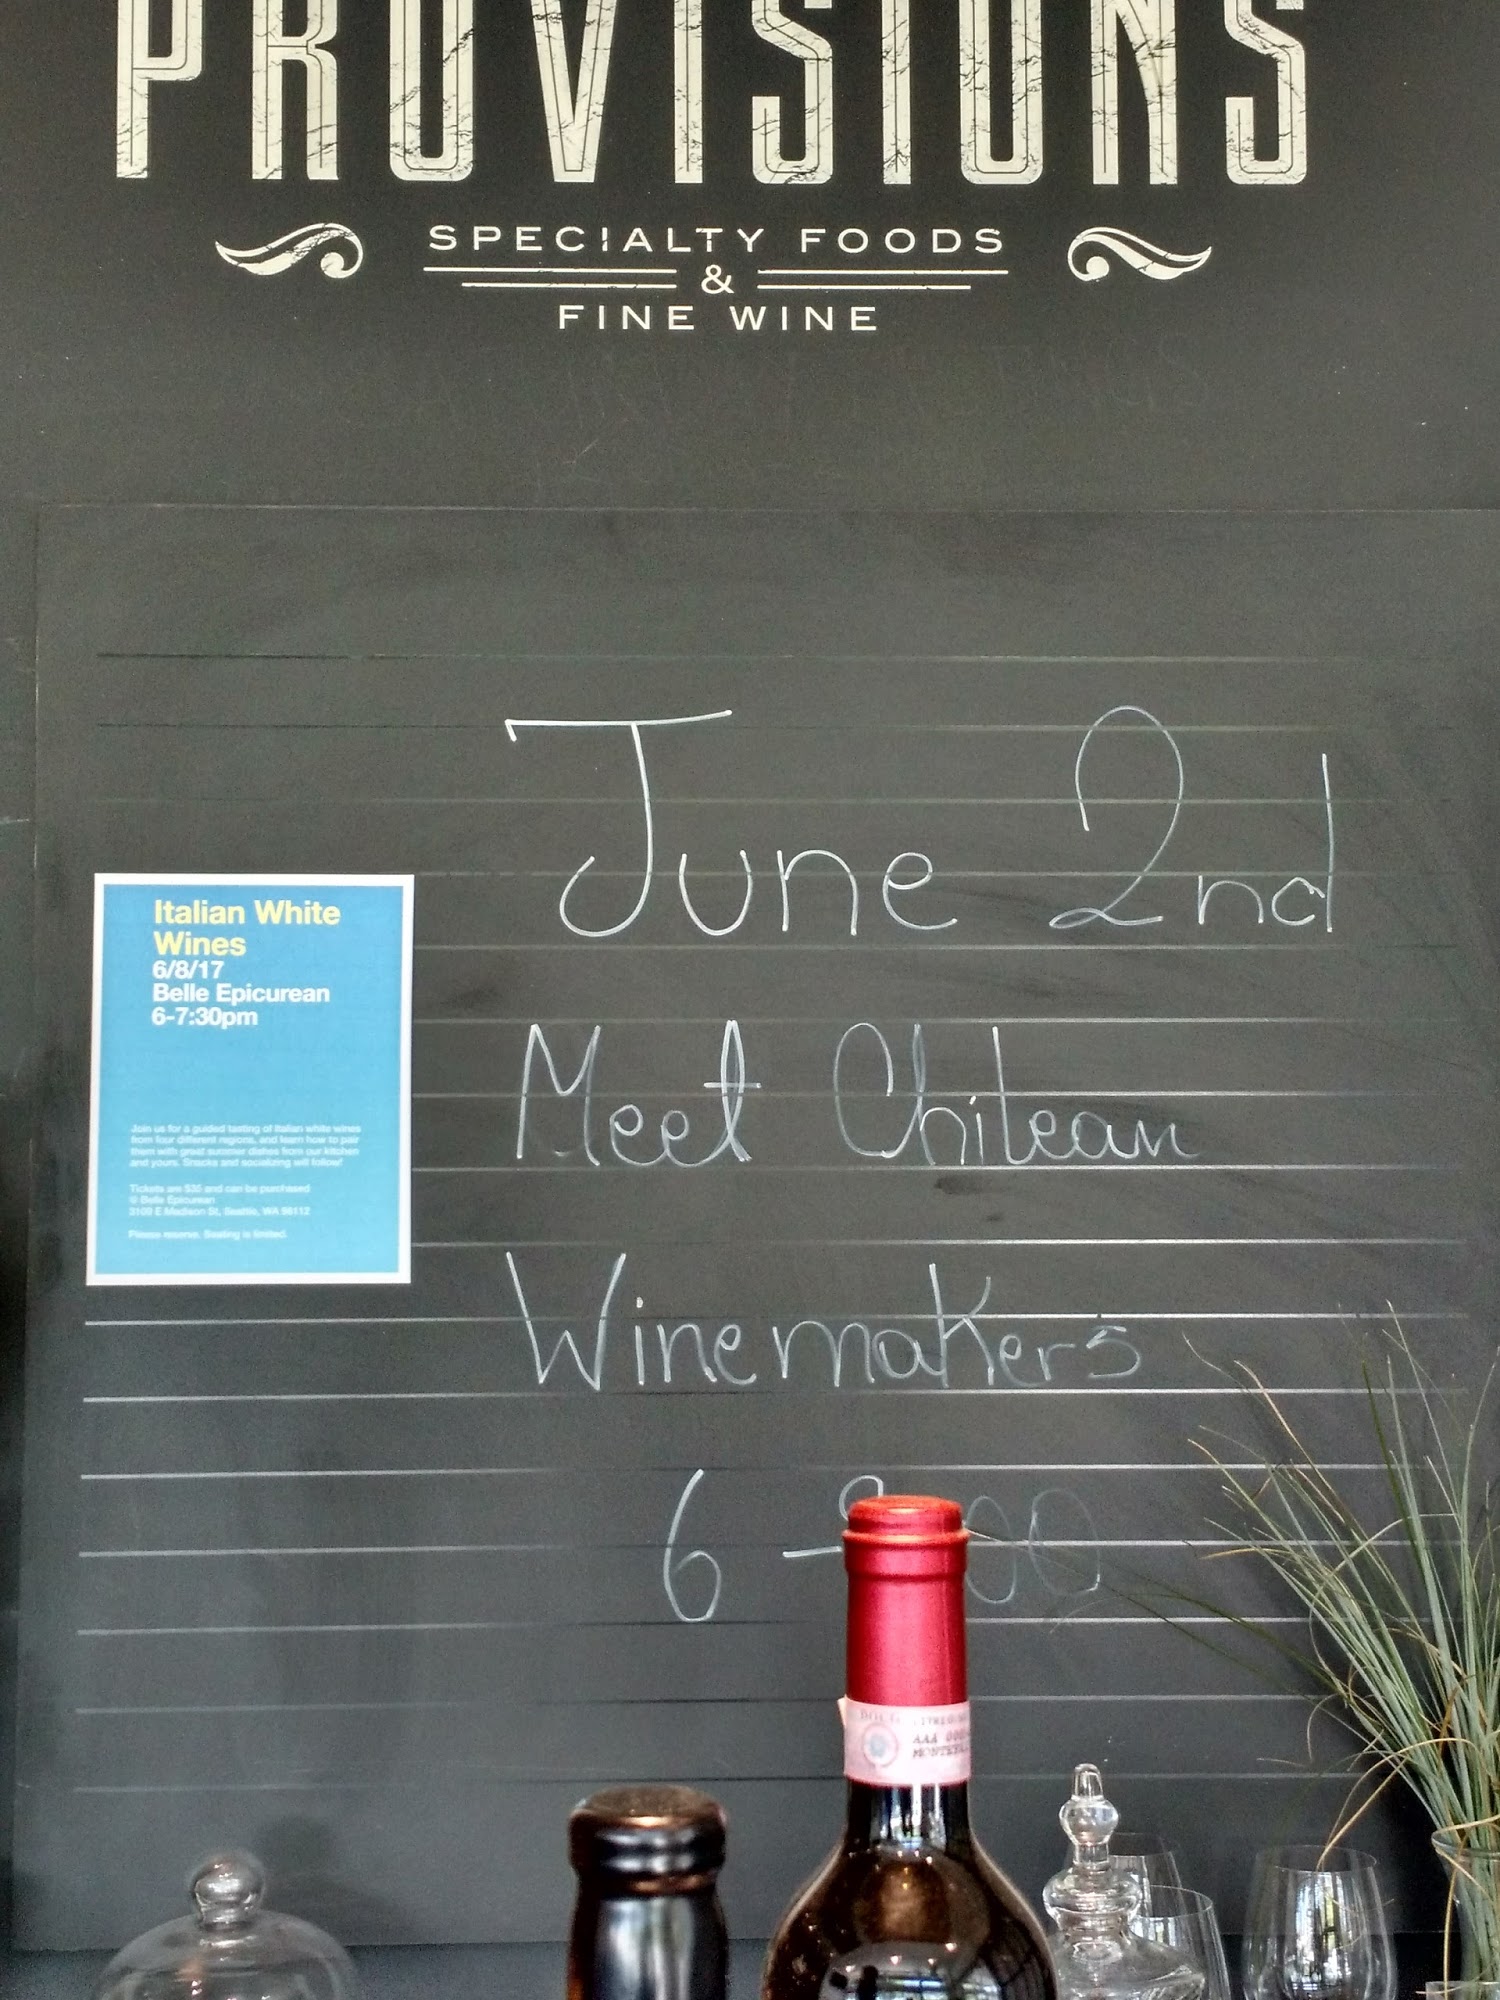 PROVISIONS
SPECIALTY FOODS
&
FINE WINE
June 2nd
Meet Chilean
Winemakers
6 -
Italian White
Wines
6/8/17
Belle Epicurean
6-7:30pm
Join us for a guided tasting of Italian white wines
from four different regions, and learn how to pair
them with great summer dishes from our kitchen
and yours. Snacks and socializing will follow!
Tickets are $35 and can be purchased
@ Belle Epicurean
3109 E Madison St, Seattle, WA 98112
Please reserve. Seating is limited.
AAA